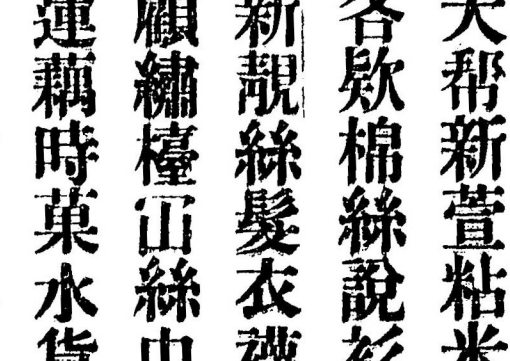 大帮新萱粘米
各欵棉絲說衫
新靚絲髮衣襪
顧繡檯冚絲巾
蓮藕時菓水貨